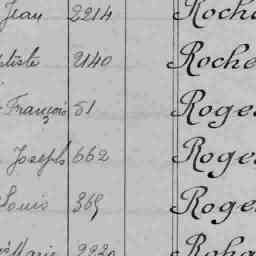 Jean 2214 Roch
tiste 2140 Roche
François 51 Roge
Joseph 662 Roge
Louis 369 Roge
Marie 2230 Roha